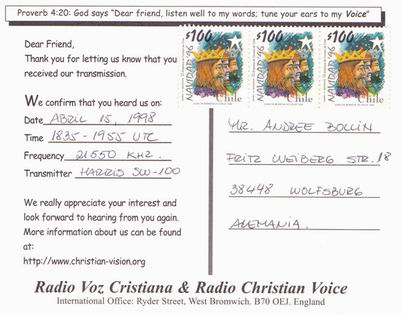 Proverb 4:20: God says "Dear friend, listen well to my words; tune your ears to my Voice"
Dear Friend,
Thank you for letting us know that you
received our transmission.
We confirm that you heard us on:
Date ABRIL 15, 1998
Time 1835-1955 UTC
Frequency 21550 KHZ.
Transmitter HARRIS SW-100
We really appreciate your interest and
look forward to hearing from you again.
More information about us can be found
at:
http://www.christian-vision.org
$100 $100 $100
NAVIDAD '96 NAVIDAD '96 NAVIDAD '96
Chile Chile Chile
MR. ANDREE BOLLIN
FRITZ WEIBERG STR. 18
38448 WOLFSBURG
ALEMANIA.
Radio Voz Cristiana & Radio Christian Voice
International Office: Ryder Street, West Bromwich. B70 OEJ. England